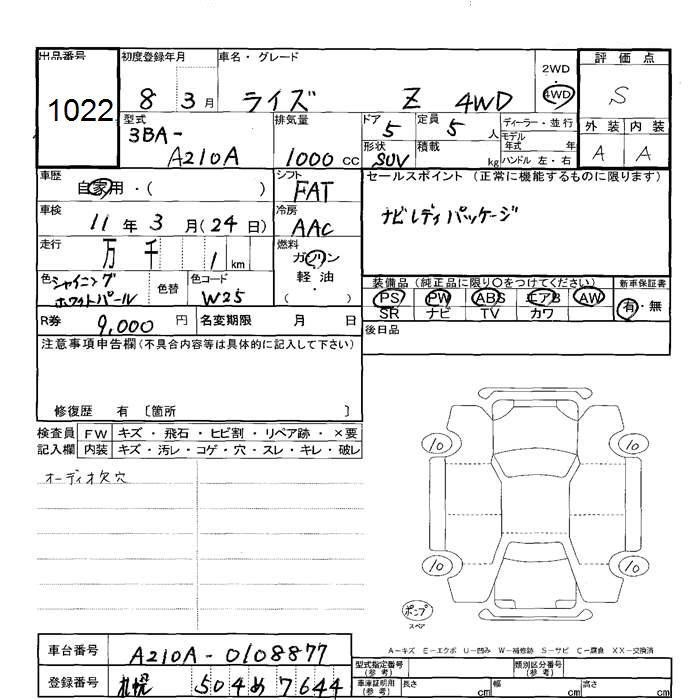 出品番号 初度登録年月 車名・グレード 2WD 評価点
1022 8 3月 ライズ Z 4WD 4WD S
型式 排気量 ドア 定員 ディーラー・並行 外装 内装
3BA- 5 5人 モデル年式 年 A A
A210A 1000cc 形状 SUV 積載 kg ハンドル 左・右
車歴 自家用・( ) シフト FAT セールスポイント (正常に機能するものに限ります)
車検 11年3月(24日) 冷房 AAC ナビレディパッケージ
走行 万 千 1km 燃料 ガソリン
軽油・( )
色 シャイニング 色替 色コード 装備品(純正品に限り〇をつけてください) 新車保証書
ホワイトパール W25 PS PW ABS エアB AW 有・無
SR ナビ TV カワ
R券 9,000円 名変期限 月 日 後日品
注意事項申告欄(不具合内容等は具体的に記入して下さい)
修復歴 有 〔箇所 〕
検査員 FW キズ・飛石・ヒビ割・リペア跡・×要
記入欄 内装 キズ・汚レ・コゲ・穴・スレ・キレ・破レ
オーディオ欠穴
10 10
10 10
ポンプ
スペア
A−キズ E−エクボ U−凹み W−補修跡 S−サビ C−腐食 XX−交換済
車台番号 A210A-0108877 型式指定番号(参考) 類別区分番号(参考)
登録番号 札幌 504 め 7644 車庫証明用(参考) 長さ cm 幅 cm 高さ cm